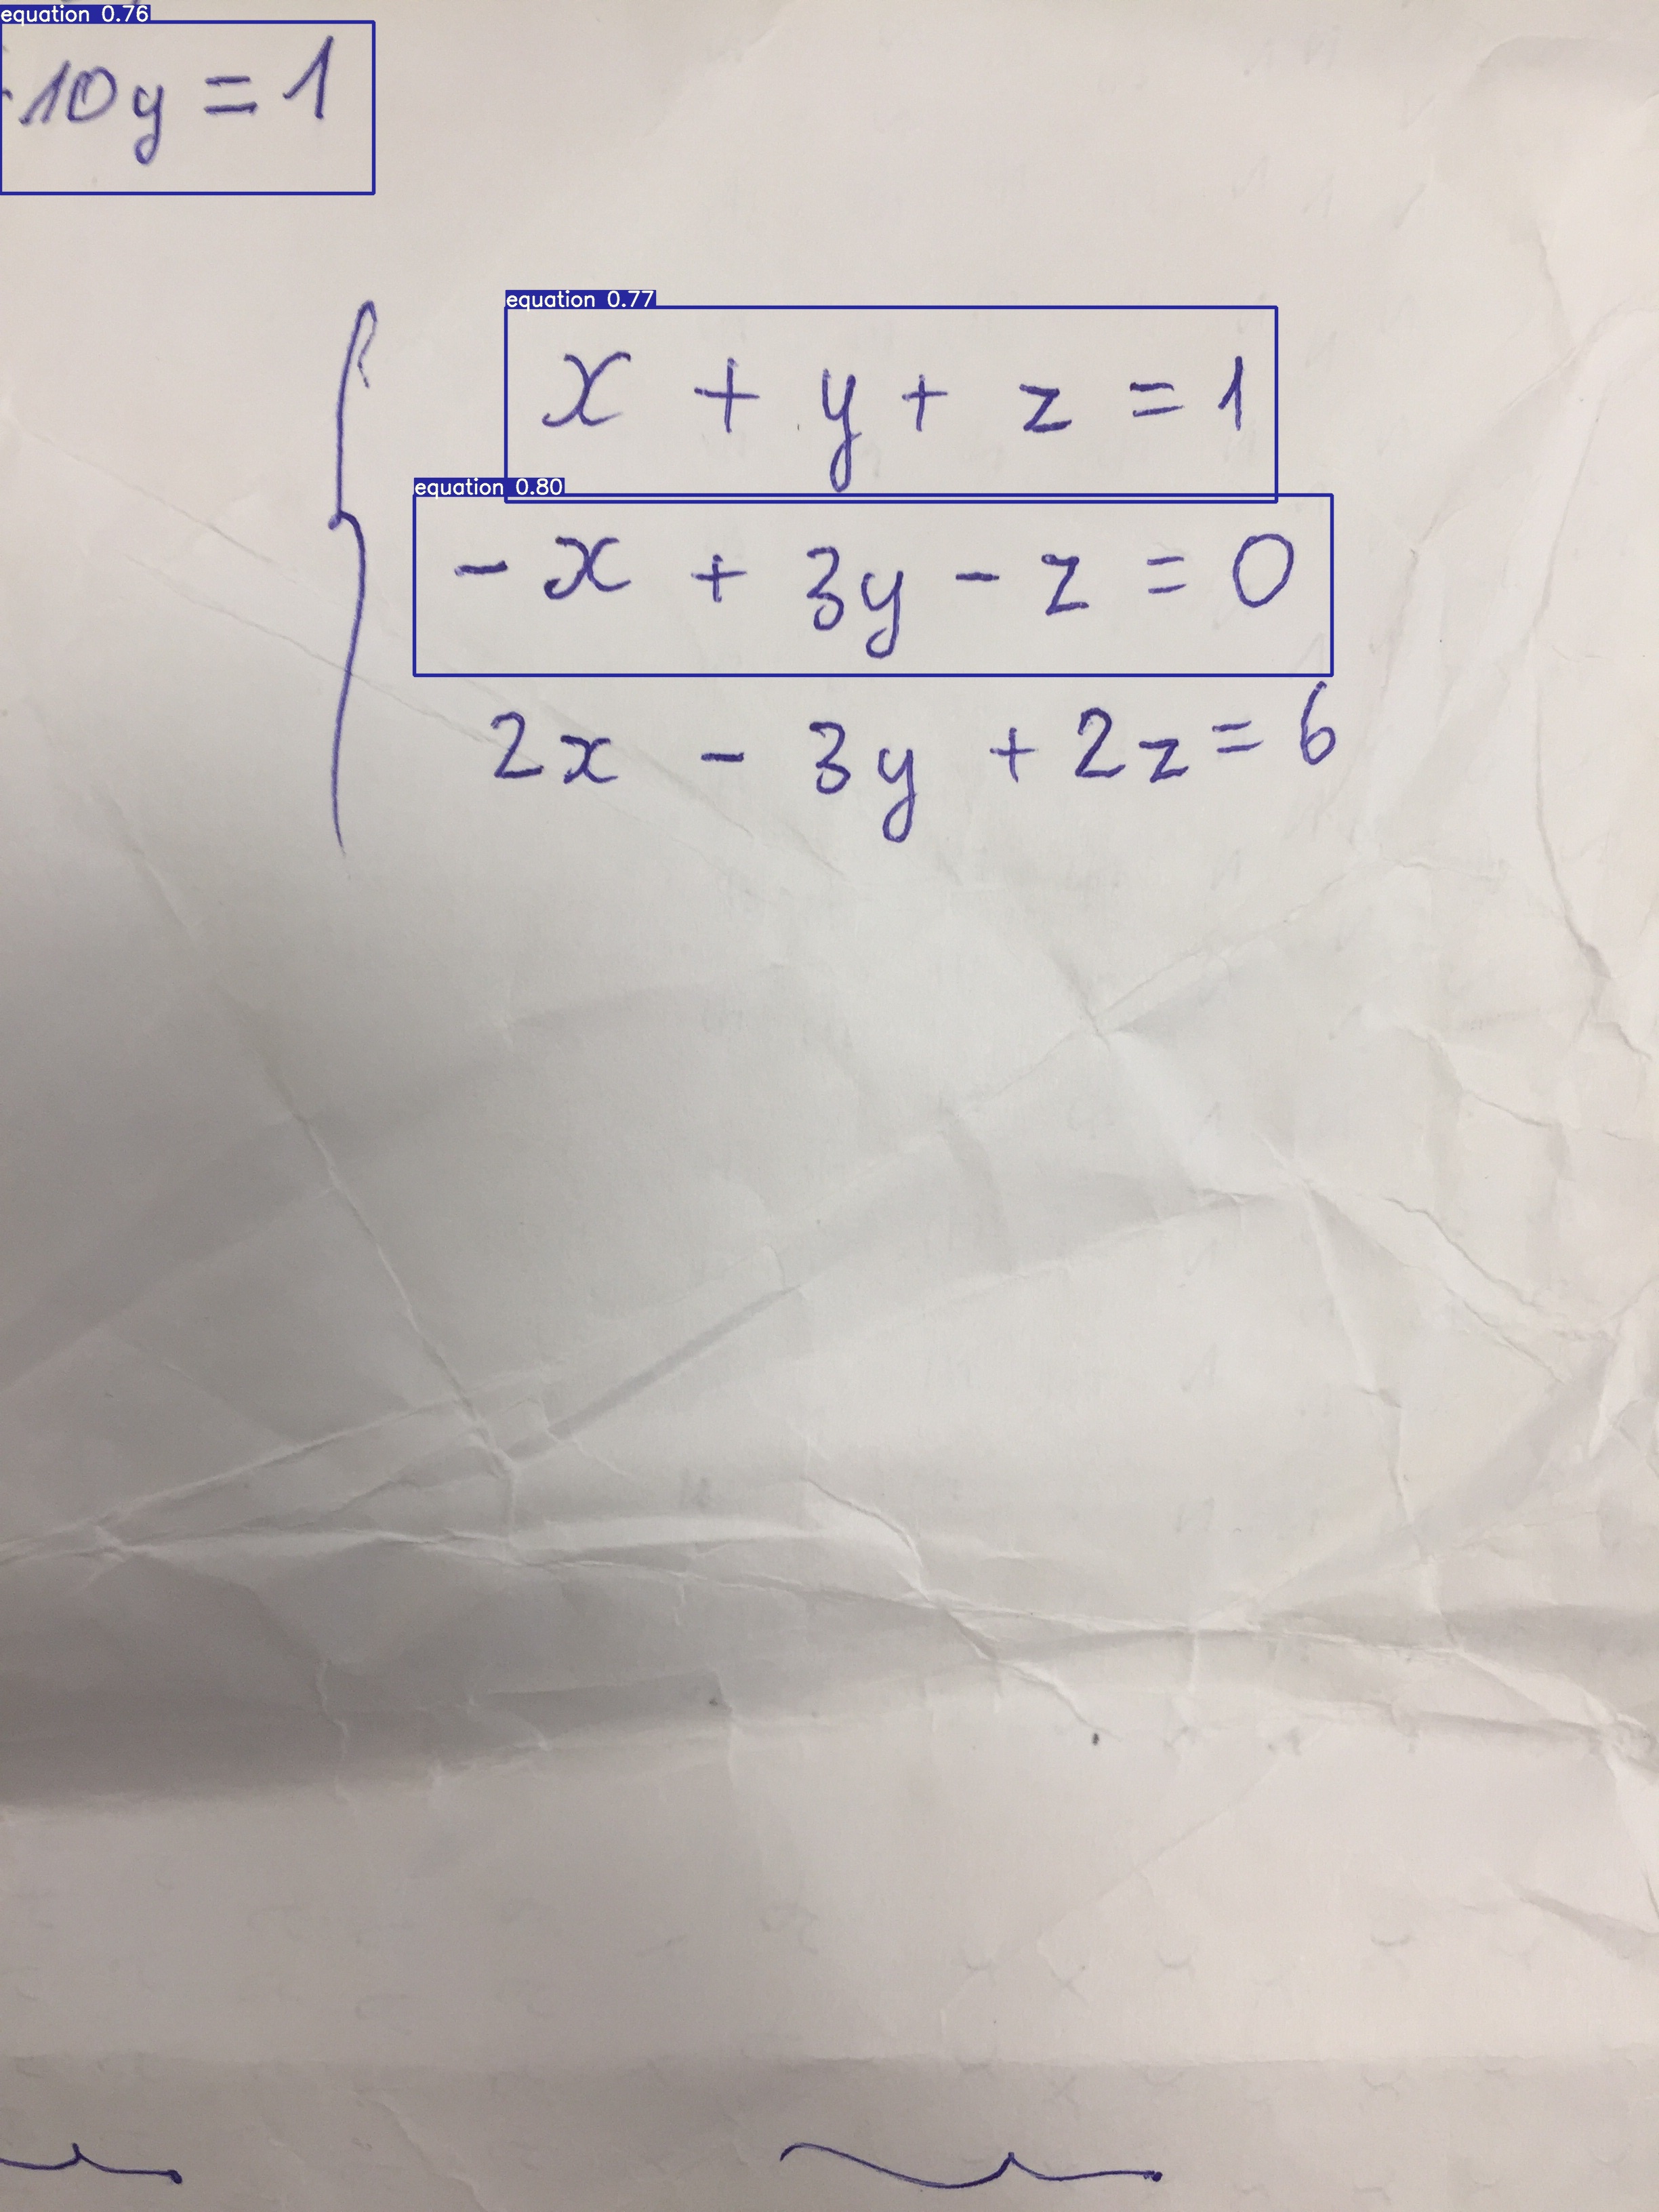 equation 0.76
-10y = 1
equation 0.77
x + y + z = 1
equation 0.80
- x + 3y - z = 0
2x - 3y + 2z = 6